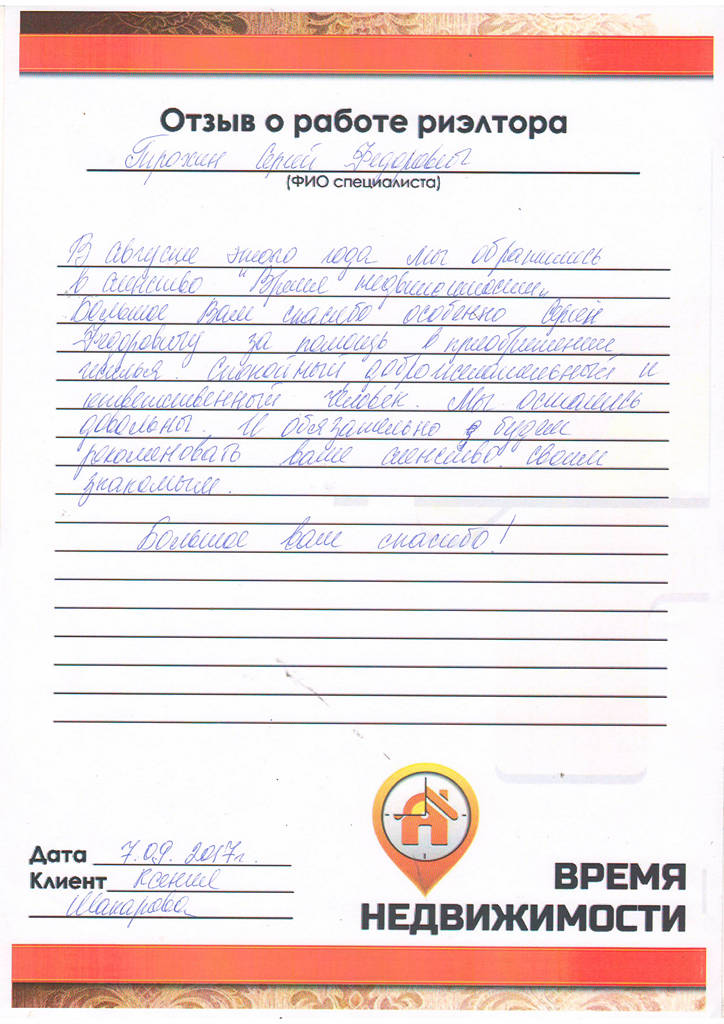 Отзыв о работе риэлтора
Сергей Федорович
(ФИО специалиста)
В августе этого года мы обратились
в агенство "Время недвижимости"
Большое Вам спасибо особенно Сергей
Федоровичу за помощь в приобретении
жилья. Спокойный, доброжелательный и
ответственный человек. Мы остались
довольны. И обязательно будем
рекомендовать ваше агенство своим
знакомым.
Большое вам спасибо!
Дата 7.09.2017г.
Клиент Ксения
ВРЕМЯ
НЕДВИЖИМОСТИ